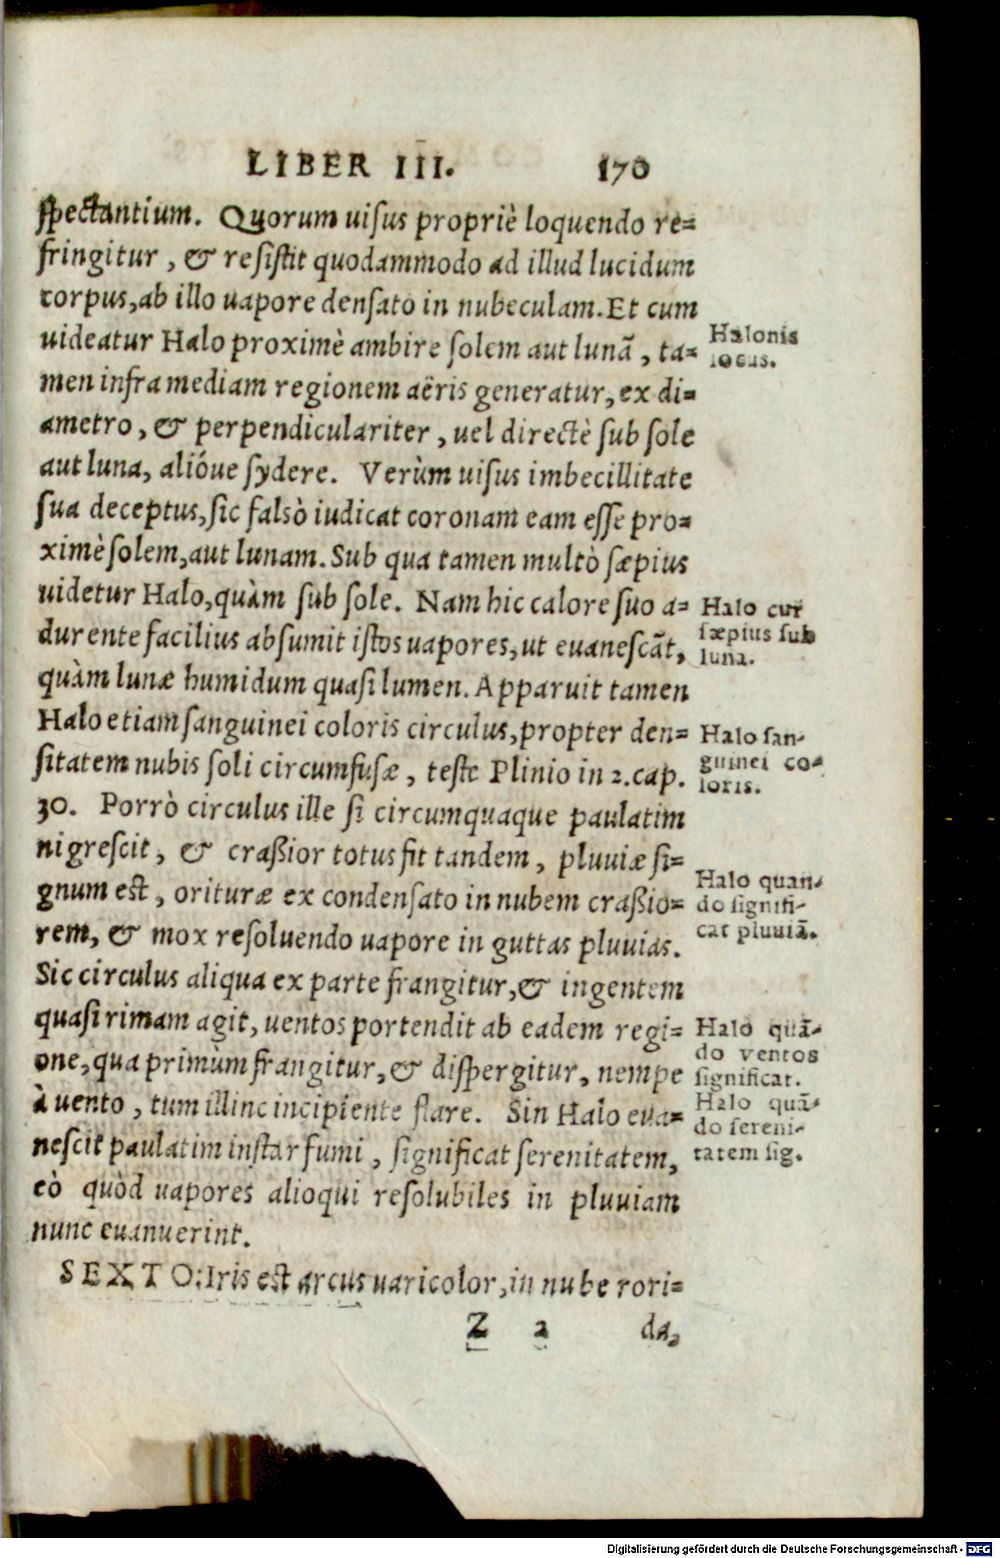 LIBER III. 170
ſpectantium. Quorum uiſus propriè loquendo re-
fringitur, & reſiſtit quodammodo ad illud lucidum
corpus, ab illo uapore denſato in nubeculam. Et cum
uideatur Halo proximè ambire ſolem aut lunā, ta-
men infra mediam regionem aëris generatur, ex di-
ametro, & perpendiculariter, uel directè ſub ſole
aut luna, alióue ſydere. Verùm uiſus imbecillitate
ſua deceptus, ſic falsò iudicat coronam eam eſſe pro-
ximè ſolem, aut lunam. Sub qua tamen multò ſæpius
uidetur Halo, quàm ſub ſole. Nam hic calore ſuo a-
durente facilius abſumit iſtos uapores, ut euaneſcāt,
quàm lunæ humidum quaſi lumen. Apparuit tamen
Halo etiam ſanguinei coloris circulus, propter den-
ſitatem nubis ſoli circumfuſæ, teſte Plinio in 2. cap.
30. Porrò circulus ille ſi circumquaque paulatim
nigreſcit, & craßior totus fit tandem, pluuiæ ſi-
gnum est, orituræ ex condenſato in nubem craßio-
rem, & mox reſoluendo uapore in guttas pluuias.
Sic circulus aliqua ex parte frangitur, & ingentem
quaſi rimam agit, uentos portendit ab eadem regi-
one, qua primùm frangitur, & diſpergitur, nempe
à uento, tum illinc incipiente flare. Sin Halo eua-
neſcit paulatim inſtar fumi, ſignificat ſerenitatem,
eò quòd uapores alioqui reſolubiles in pluuiam
nunc euanuerint.
SEXTO: Iris est arcus uaricolor, in nube rori-
Z 2 da,
Halonis
locus.
Halo cur
ſæpius ſub
luna.
Halo ſan-
guinei co-
loris.
Halo quan-
do ſignifi-
cat pluuiā.
Halo quā-
do ventos
ſignificat.
Halo quā-
do ſereni-
tatem ſig.
Digitalisierung gefördert durch die Deutsche Forschungsgemeinschaft - DFG